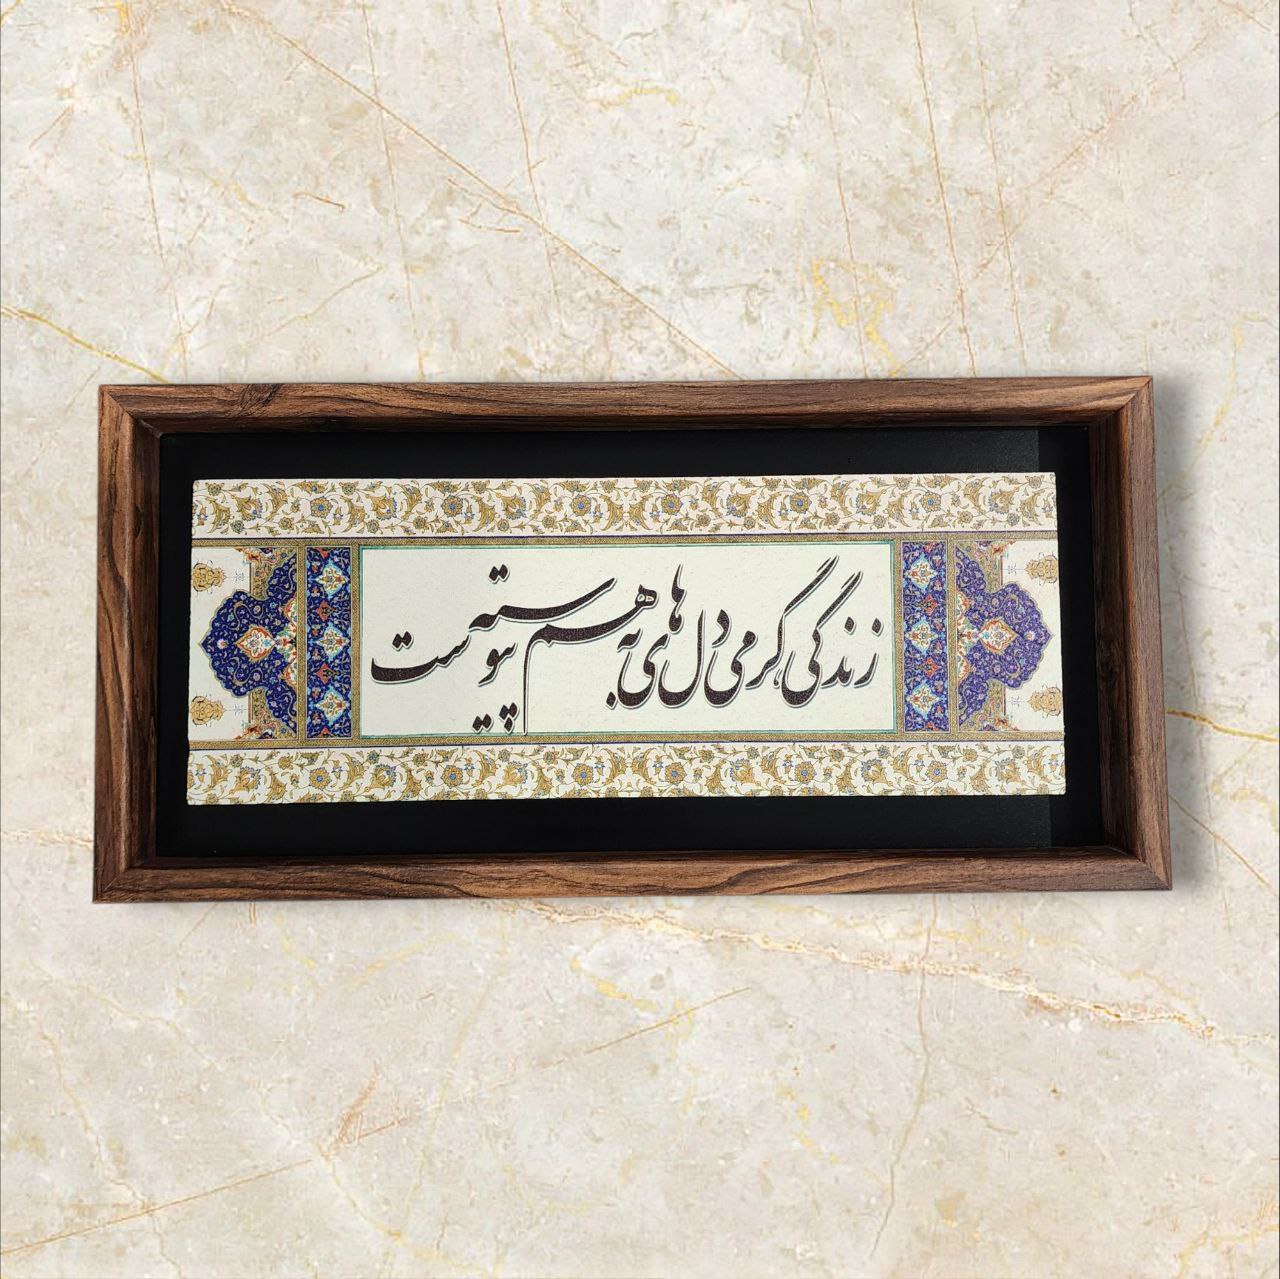 زندگی گرمی دل های به هم پیوسته ست